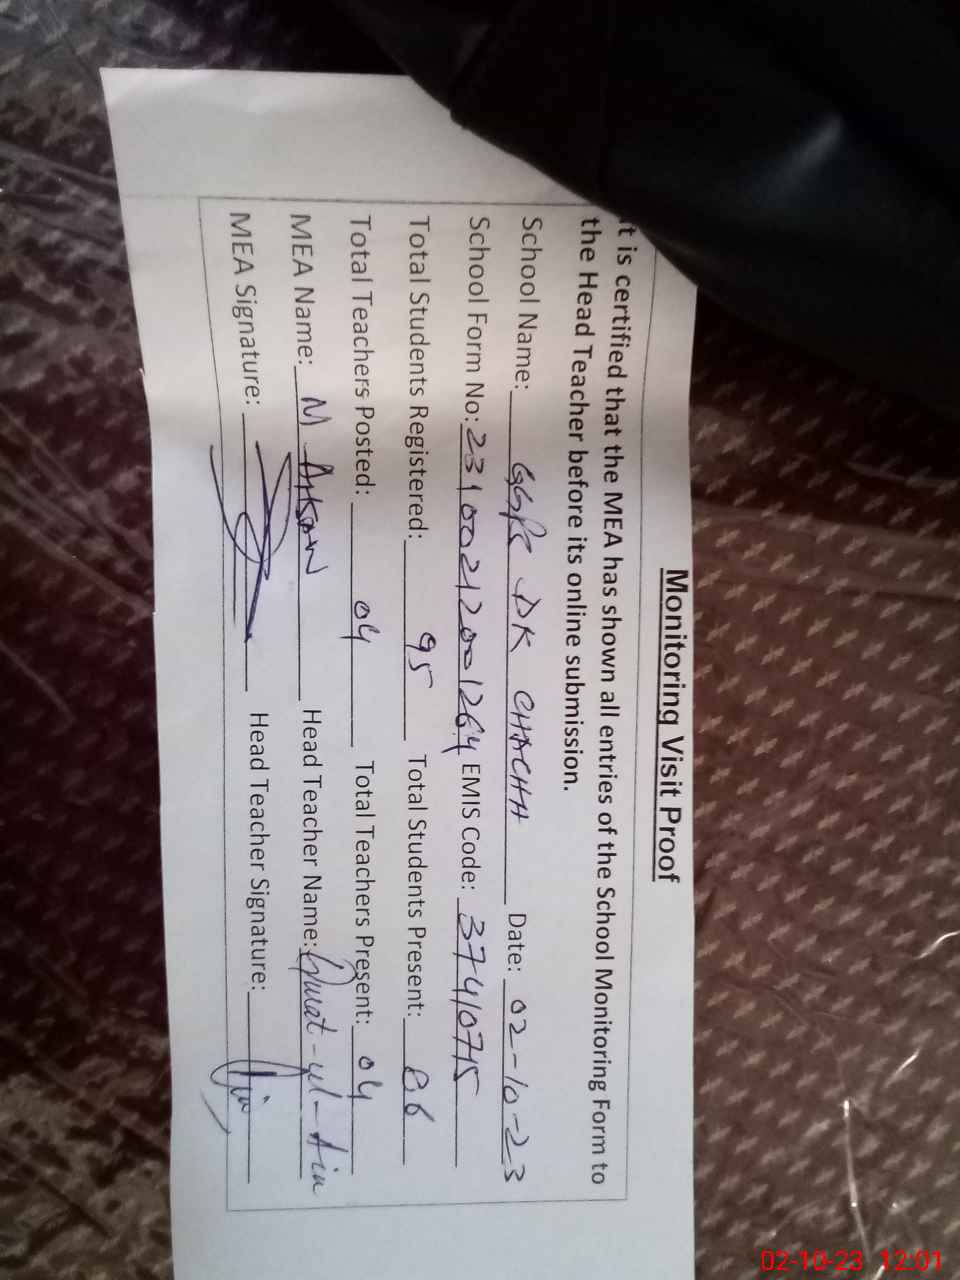 Monitoring Visit Proof
It is certified that the MEA has shown all entries of the School Monitoring Form to
the Head Teacher before its online submission.
School Name: GGPS DK CHACHH Date: 02-10-23
School Form No: 23100212001264 EMIS Code: 37410715
Total Students Registered: 95 Total Students Present: 86
Total Teachers Posted: 04 Total Teachers Present: 04
MEA Name: M Head Teacher Name: Qurat-ul-Ain
MEA Signature: Head Teacher Signature:
02-10-23 12:01